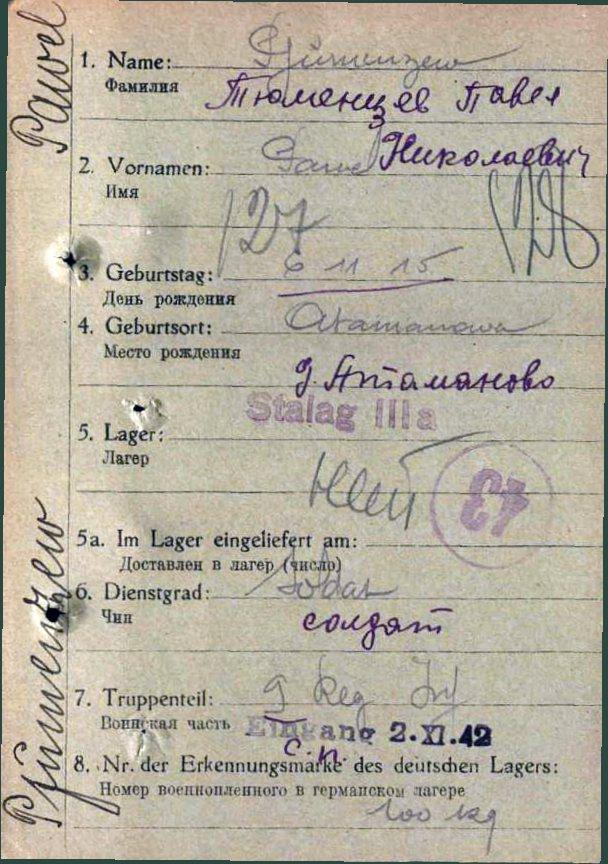 Pawel
Pjumenzew
1. Name: Pjumenzew
Фамилия Тюменцев Павел
2. Vornamen: Pawel Николаевич
Имя
127
3. Geburtstag: 6 11 15
День рождения
4. Geburtsort: Atamanowa
Место рождения
д. Атаманово
Stalag IIIa
5. Lager:
Лагерь
43
5a. Im Lager eingeliefert am:
Доставлен в лагер (число)
6. Dienstgrad: Soldat
Чин солдат
7. Truppenteil: 9 Reg Inf
Воинская часть Eingang 2. XI. 42
с.п.
8. Nr. der Erkennungsmarke des deutschen Lagers:
Номер военнопленного в германском лагере
100 kg